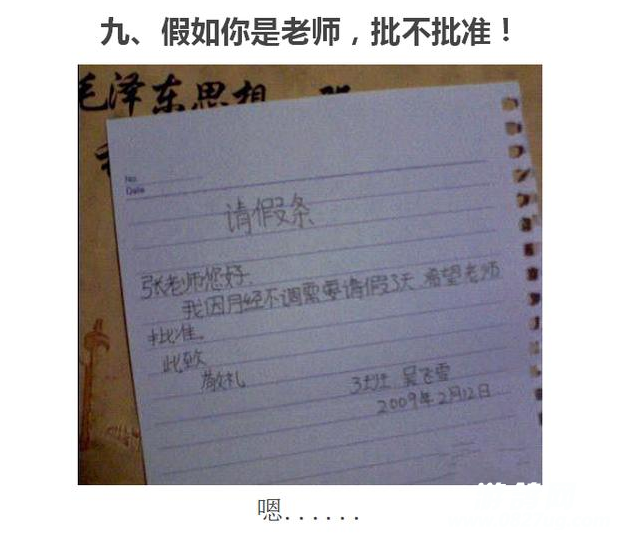 九、假如你是老师，批不批准！
毛泽东思想
No.
Date
请假条
张老师您好.
我因月经不调需要请假3天 希望老师
批准.
此致
敬礼
3班 吴飞雪
2009年2月12日
嗯......